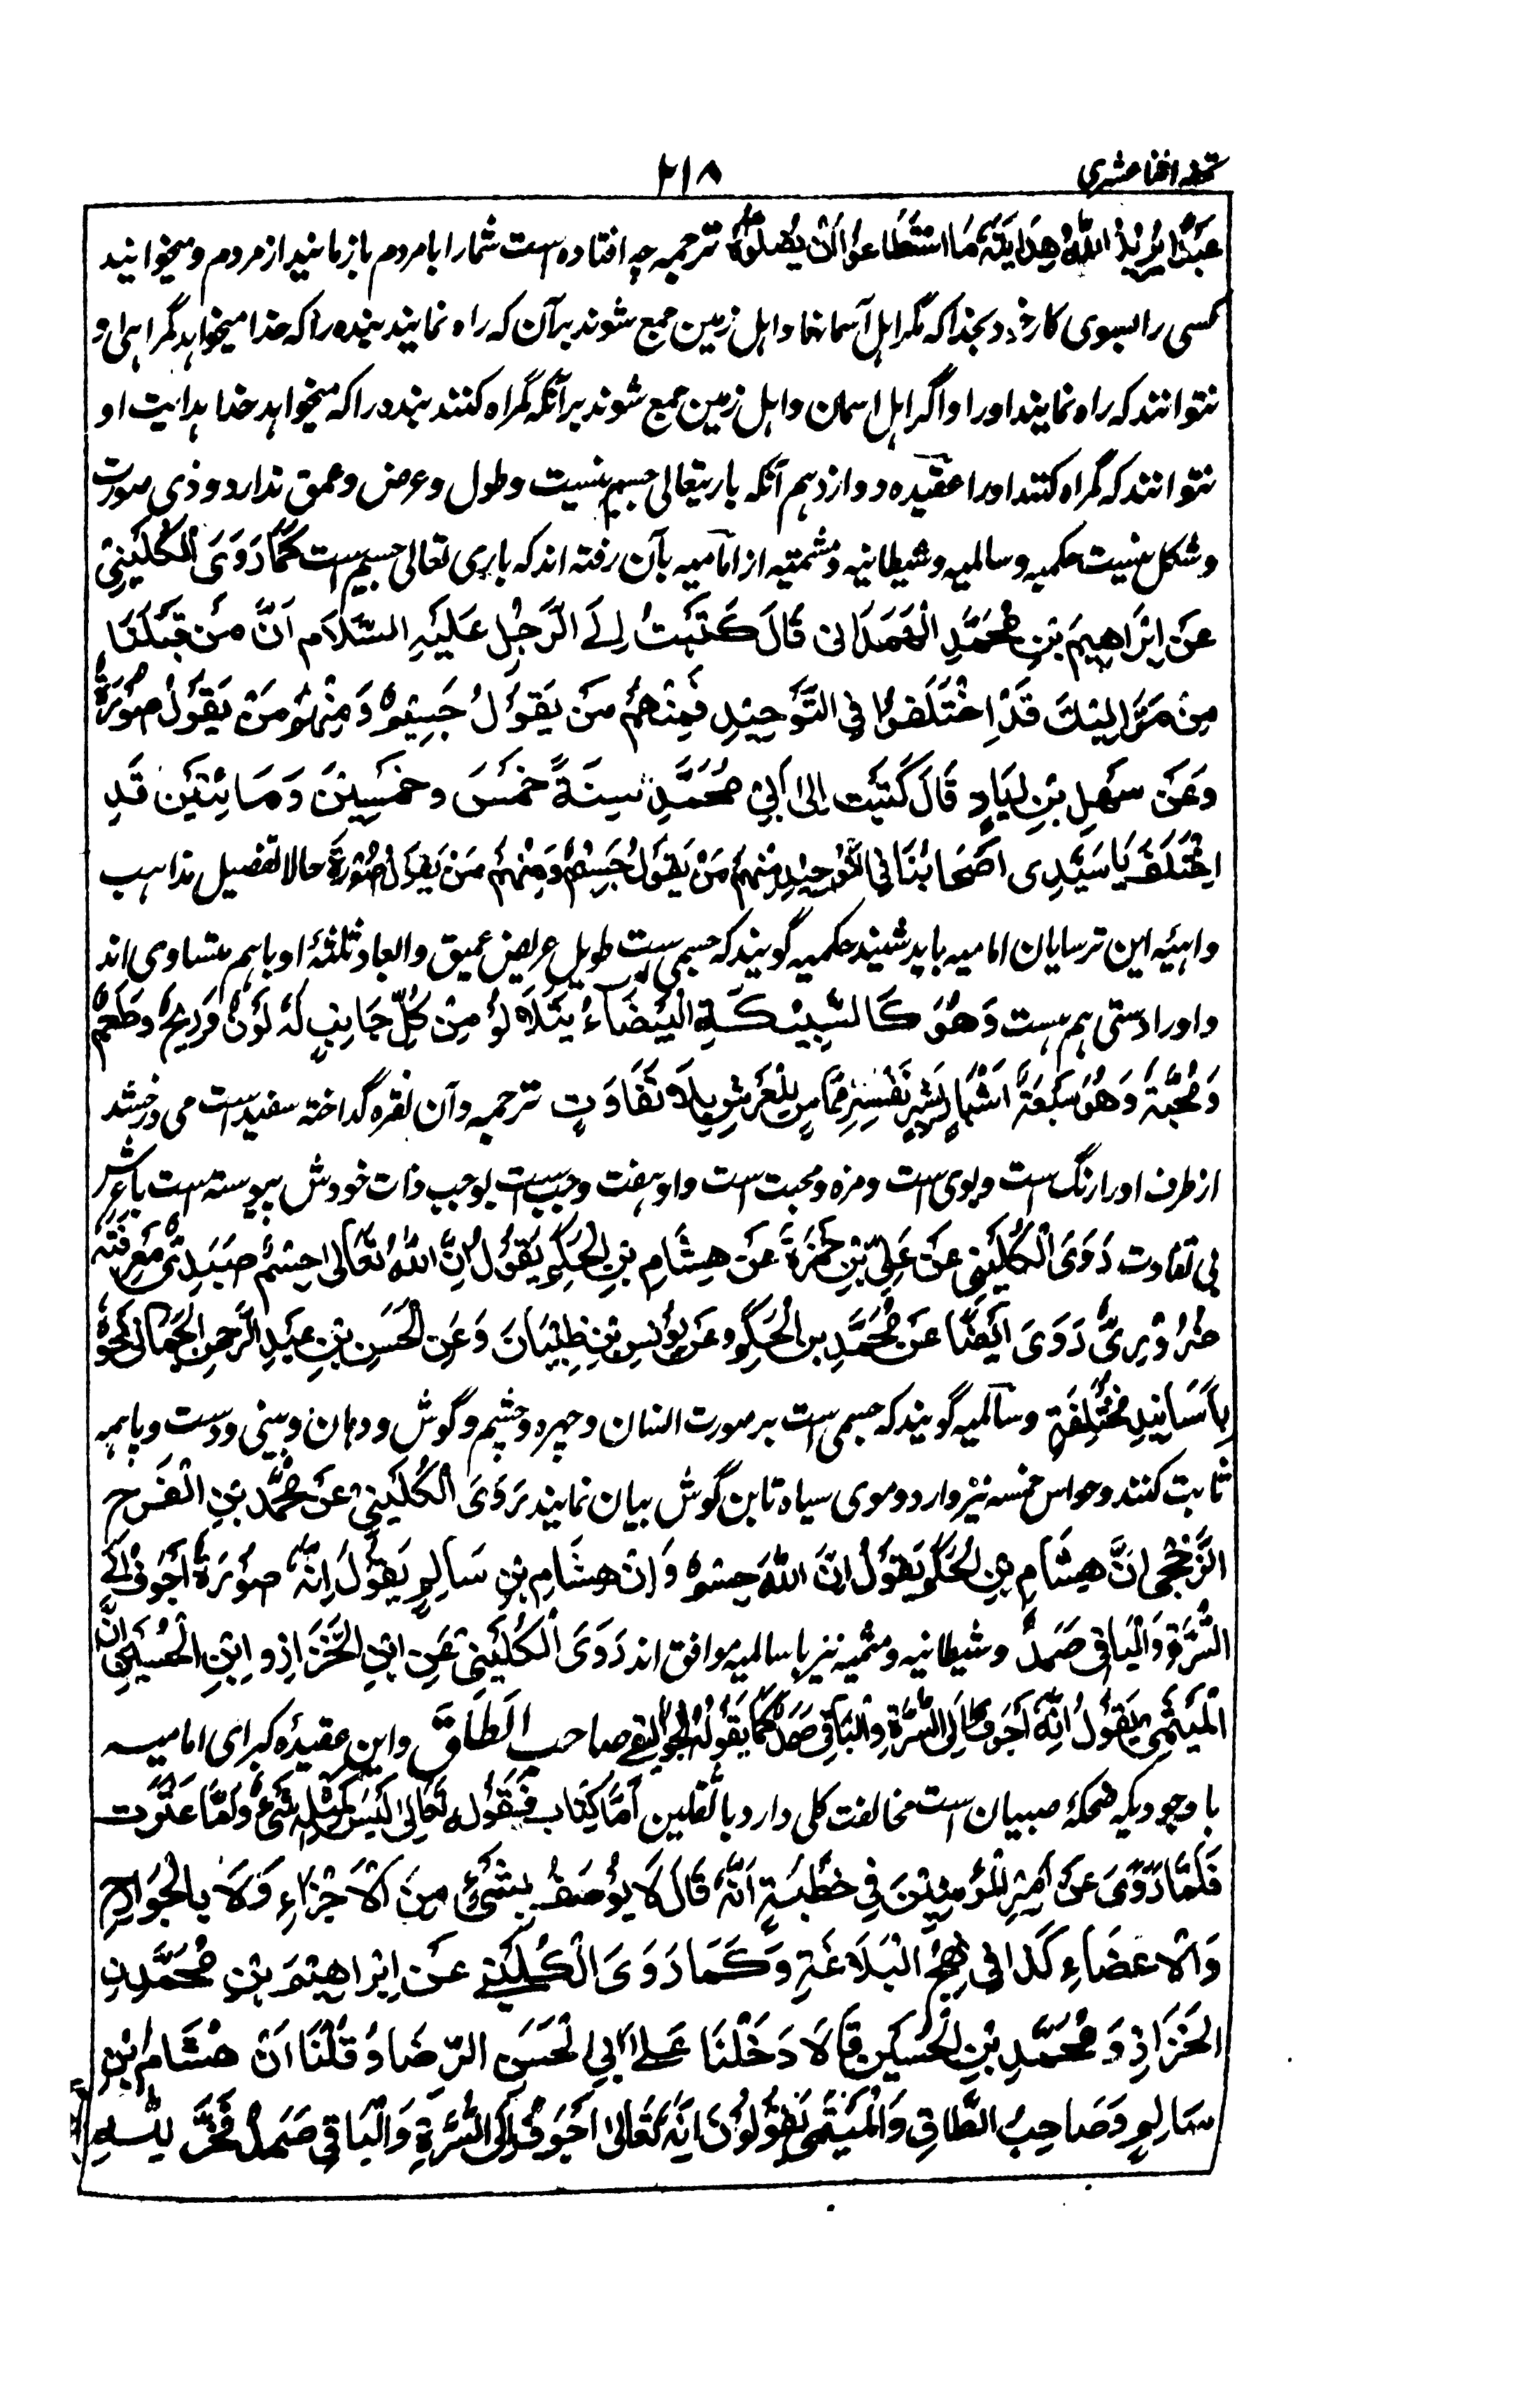 تحفه اثنا عشری
۲۱۸
عَبْدًا يُرِيْدُ اللّٰهُ هِدَايَتَهٗ مَا اسْتَطَاعُوْا اَنْ يُضِلُّوْهُ ترجمه چه افتاده است شما را با مردم باز مانید از مردم و مخوانید
کسی را بسوی کار خود بخدا که مگر اهل آسمانها و اهل زمین جمع شوند بر آن که راه نمایند بنده را که خدا میخواهد گمراهی او
نتوانند که راه نمایند او را و اگر اهل اسمان و اهل زمین جمع شوند بر آنکه گمراه کنند بنده را که میخواهد خدا هدایت او
نتوانند که گمراه کنند او را عقیده دوازدهم آنکه باریتعالی جسم نیست و طول و عرض و عمق ندارد و ذی صورت
و شکل نیست حکمیه و سالمیه و شیطانیه و میثمیه از امامیه بآن رفته اند که باری تعالی جسم است كَمَا رَوَى الْكُلَيْنِيْ
عَنْ اِبْرَاهِيْمَ بْنِ مُحَمَّدِ الْهَمَدَانى قَالَ كَتَبْتُ اِلَى الرَّجُلِ عَلَيْهِ السَّلَام اَنَّ مَنْ قِبَلَنَا
مِنْ مَوَالِيْكَ قَدْ اِخْتَلَفُوْا فِي التَّوْحِيْدِ فَمِنْهُمْ مَنْ يَقُوْلُ جِسْمٌ وَمِنْهُمْ مَنْ يَقُوْلُ صُوْرَةٌ
وَعَنْ سَهْلِ بْنِ زِيَادٍ قَالَ كَتَبْتُ اِلىٰ اَبِيْ مُحَمَّدٍ سَنَةً خَمْسَ وخَمْسِيْنَ وَمَائَتَيْنِ قَدِ
اخْتَلَفَ يَا سَيِّدِى اَصْحَابُنَا فِي التَّوْحِيْدِ مِنْهُمْ مَنْ يَقُوْلُ جِسْمٌ وَمِنْهُمْ مَنْ يَقُوْلُ صُوْرَةٌ حالا تفصیل مذاهب
واهیه این ترسایان امامیه باید شنید حکمیه گویند که جسمی ست طویل عریض عمیق و ابعاد ثلثهٔ او باهم متساوی اند
و او را دستی هم هست وَهُوَ كَالسَّبِيْكَةِ الْبَيْضَاءُ يَتَلَأْ لَؤُ مِنْ كُلِّ جَانِبٍ لَهٗ لَوْنٌ وَرِيْحٌ وطَعْمٌ
وَمُجَّبَةٌ وَهُوَ سَبْعَةُ اَشْبَارٍ بِشِبْرِ نَفْسِهِ مُمَاسٍ لِلْعَرْشِ بِلَا تَفَاوُتٍ ترجمه و آن نقره گداخته سفید است می درخشد
از طرف او را رنگ است و بوی است و مزه و محبت است و او هفت وجب است بوجب ذات خودش پیوسته است با عرش
بی تفاوت رَوَى الْكُلَيْنِي عَنْ عَلِيِّ بْنِ حَمْزَةَ عَنْ هِشَامِ بْنِ الْحَكَمِ يَقُوْلُ اِنَّ اللّٰهَ تَعَالٰى جِسْمٌ صَمَدِيٌّ مَعْرِفَتُهٗ
ضَرُوْرِىٌّ رَوَى اَيْضًا عَنْ مُحَمَّدِ بن الْحَكَمِ وعَنْ يُوْنُسِ بْنِ ظِبْيَانَ وَعَنِ الْحَسَنِ بْنِ عَبْدِ الرَّحْمٰنِ الْحِمَّانى نَحْوَهٗ
بِاَسَانِيْدِ مُخْتَلِفَةٍ و سالمیه گویند که جسمی است بر صورت انسان و چهره و چشم و گوش و دهان و بینی و دست و پا همه
ثابت کنند و حواس خمسه نیز دارد و موی سیاه تا بن گوش بیان نمایند رَوَى الْكُلَيْنِيْ عَنْ مُحَمَّدِ بْنِ الْفَرَج
الرُّخَّجِى اَنَّ هِشَامِ بْنِ الْحَكَمِ يَقُوْلُ اِنَّ اللّٰهَ جِسْمٌ وَاِنَّ هِشَامِ بْنِ سَالِمٍ يَقُوْلُ اِنَّهٗ صُوْرَةٌ اَجْوَفُ اِلَى
السُّرَّةِ وَالْبَاقِي صَمَدٌ و شیطانیه و میثمیه نیز با سالمیه موافق اند رَوَى الْكُلَيْنِيْ عَنِ ابْنِ الْخَزَازِ وابْنِ الْحُسَيْنِ اِنَّ
الْمِيْثَمِىَّ يَقُوْلُ اِنَّهٗ اَجْوَفُ اِلَى السُّرَّةِ والْبَاقِي صَمَدٌ كَمَا يَقُوْلُهُ الْجَوَالِيْقِي صاحب الطَّاق و این عقیدهٔ کبرای امامیه
با وجودیکه ضحکهٔ صبیان است مخالفت کلی دارد با ثقلین اَمَّا كِتَاب فَبِقَوْلِهٖ تَعَالٰى لَيْسَ كَمِثْلِهٖ شَيْءٌ وَاَمَّا عِتْرَت
فَلَمَّا رُوِىَ عَنْ اَمِيْرِ الْمُؤْمِنِيْنَ فِي خُطْبَةٍ اَنَّهٗ قَالَ لَا يُوْصَفُ بِشَيْءٍ مِنَ الْاَجْزَاءِ وَلَا بِالْجَوَارِحِ
وَالْاَعْضَاءِ كَذَا فِي نَهْجِ الْبَلَاغَةِ وَكَمَا رَوَى الْكُلَيْنِى عَنْ اِبْرَاهِيْمَ بْنِ مُحَمَّدِنِ
الْخَزَازِ وَمُحَمَّدِ بْنِ الْحُسَيْنِ قَالَا دَخَلْنَا عَلٰى اَبِي الْحَسَنِ الرِّضَا وَقُلْنَا اَنَّ هِشَامَ ابْنِ
سَالِمٍ وَصَاحِبُ الطَّاقِ وَالْمِيْثَمِى يَقُوْلُوْنَ اِنَّهٗ تَعَالٰى اَجْوَفُ اِلَى السُّرَّةِ وَالْبَاقِي صَمَدٌ فَخَرَّ لِلّٰهِ